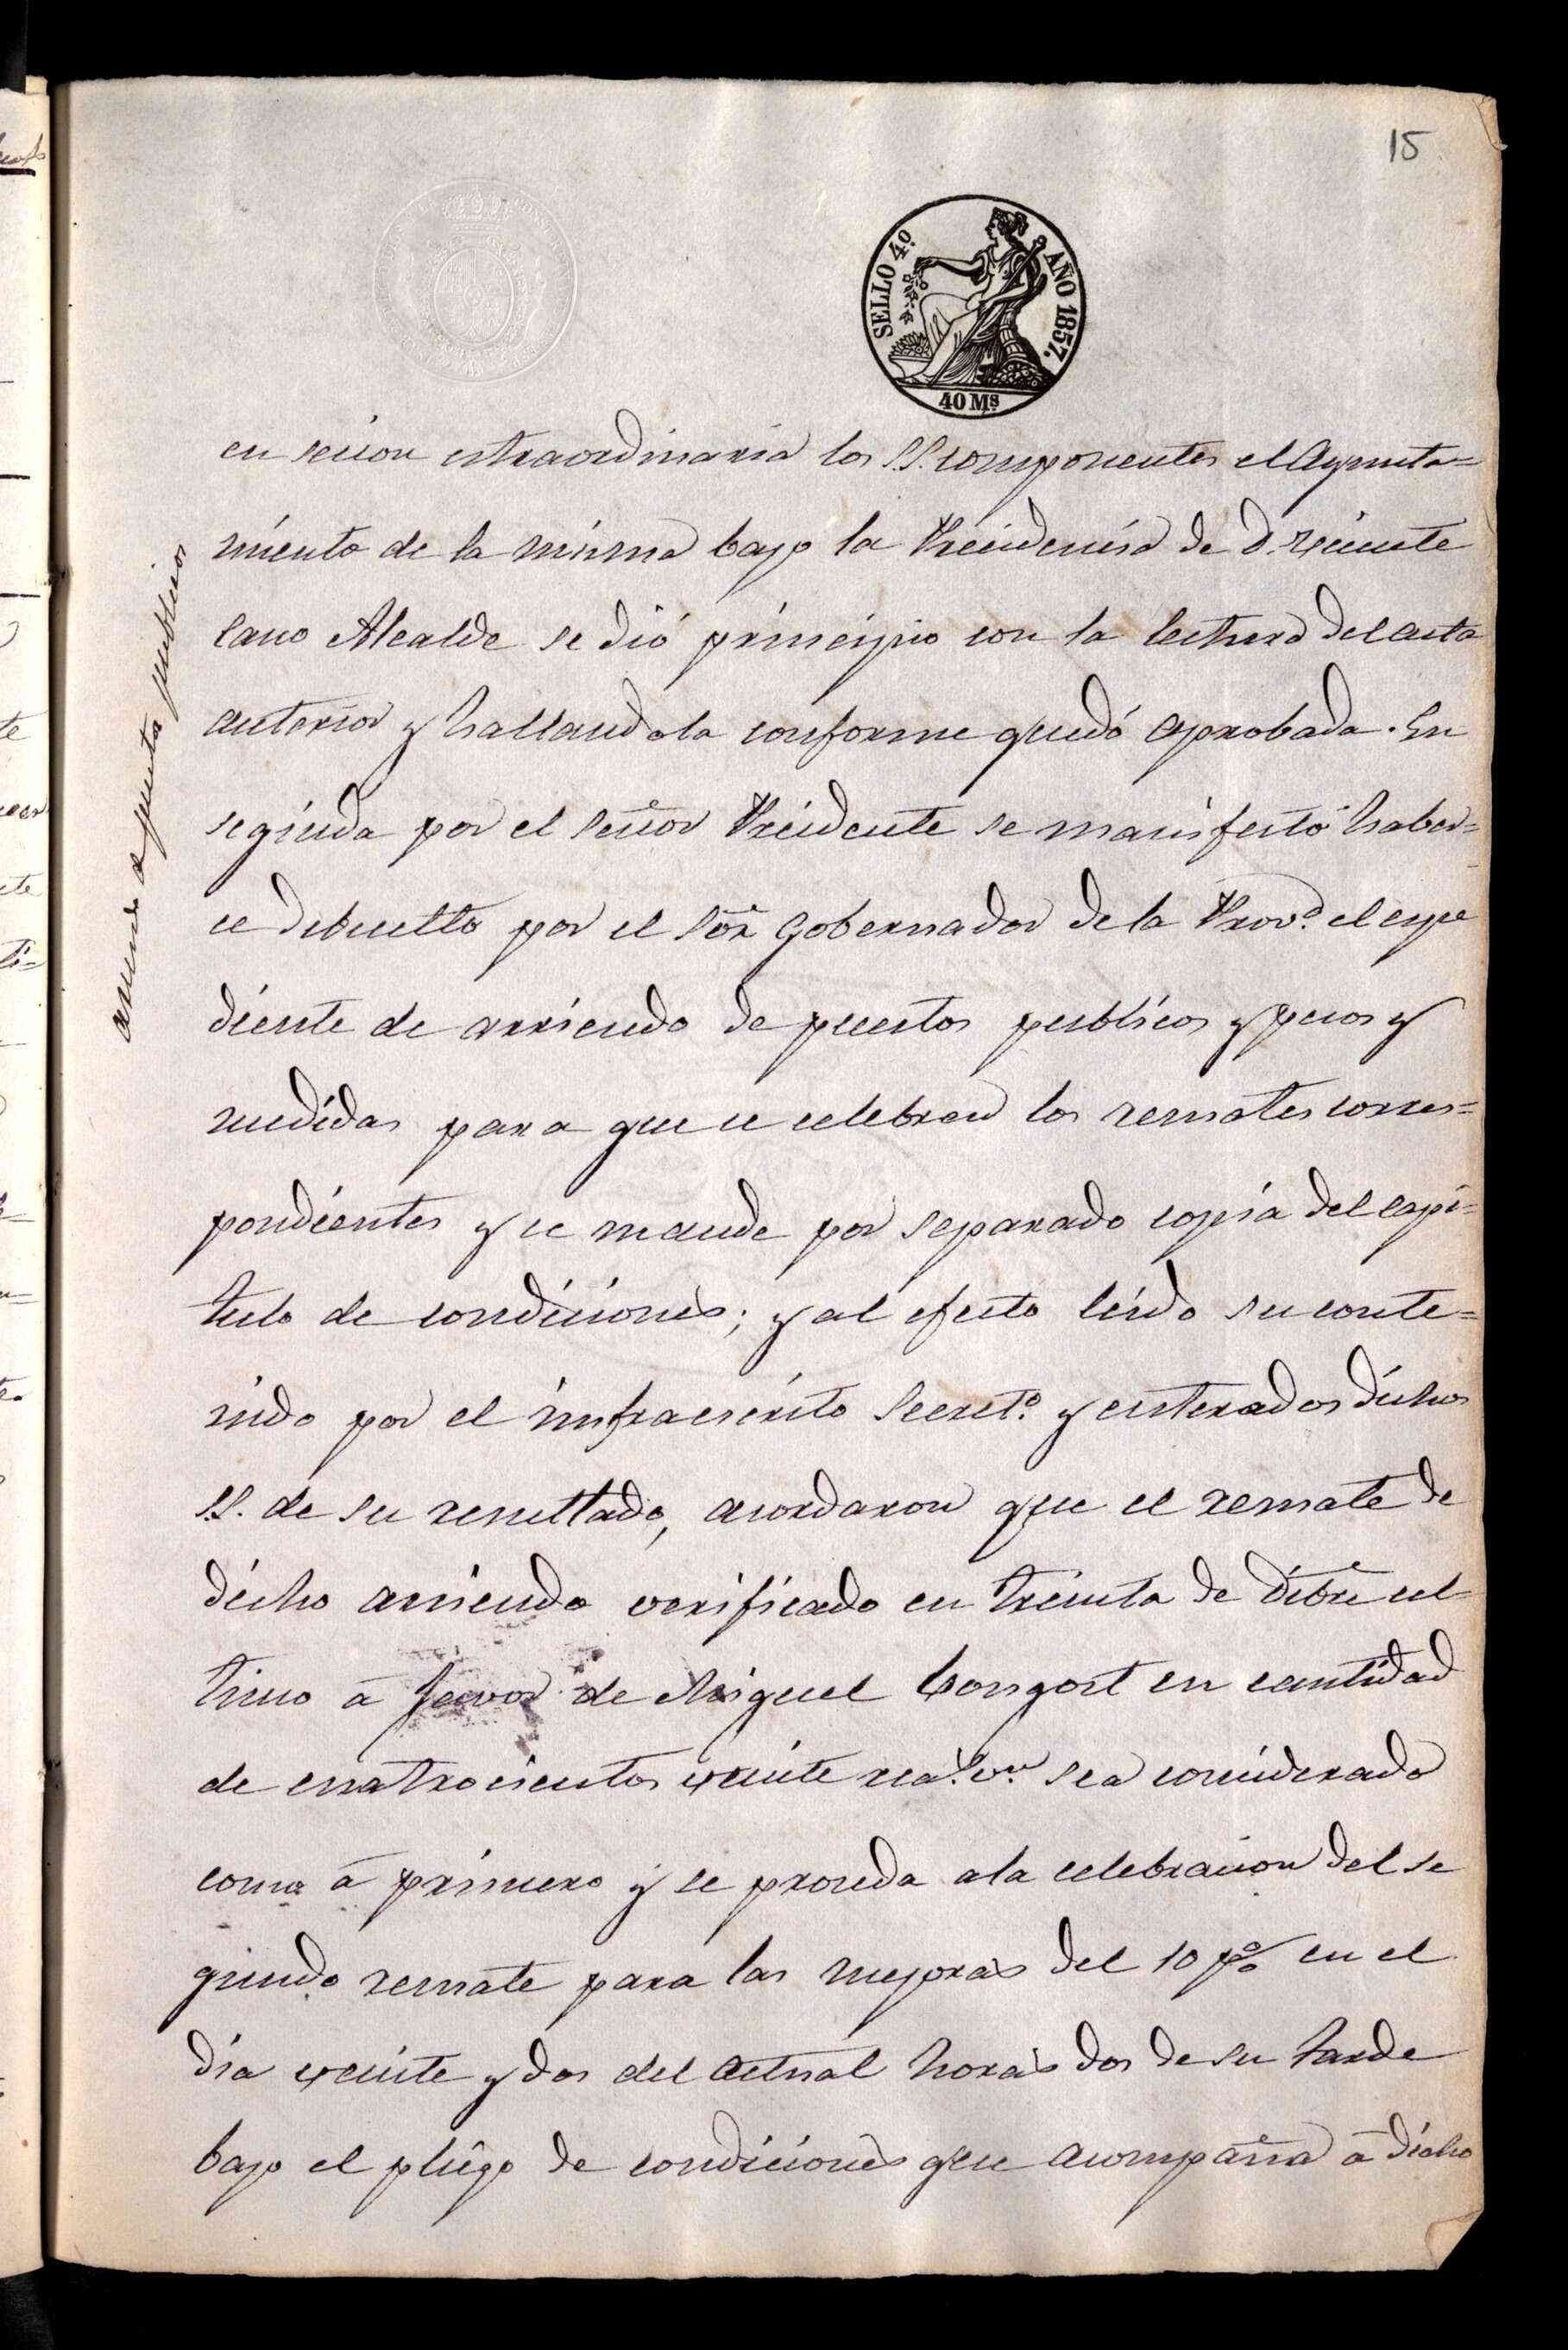 15
SELLO 4º AÑO 1857.
40 Mˢ
en secion estraordinaria los SS. componentes el Ayunta=
miento de la misma bajo la Precidencia de D. Vicente
Cano Alcalde se dió principio con la lectura del acta
anterior y hallandola conforme quedó aprobada. En
seguida por el señor Precidente se manifestó haber=
ce debuelto por el Sör Gobernador de la Provª. el espe
diente de arriendo de puestos publicos y pesos y
medidas para que ce celebren los remates corres=
pondientes y ce mande por separado copia del capi=
tulo de condiciones; y al efecto leido su conte=
nido por el infraescrito Secretº. y enterados dichos
SS. de su resultado, acordaron que el remate de
dicho arriendo verificado en treinta de Dibrē ul-
timo á favor de Miguel Gongost en cantidad
de cuatrocientos veinte reaˢ. vⁿ. sea considerado
como á primero y se proceda a la celebracion del se
gundo remate para las mejoras del 10 pº/o en el
dia veinte y dos del actual horas dos de su tarde
bajo el pliego de condiciones que acompaña á dicho
arriendo de puestos publicos